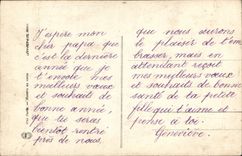 J'espère mon
cher papa que
c'est la dernière
année que je
t'envoie mes
meilleurs vœux
et souhaits de
bonne année,
que tu seras
bientôt rentré
près de nous.
que nous aurons
le plaisir de t'em
brasser, mais en
attendant reçoit
mes meilleurs vœux
et souhaits de bonne
santé de ta petite
fille qui t'aime et
pense à toi.
Geneviève.